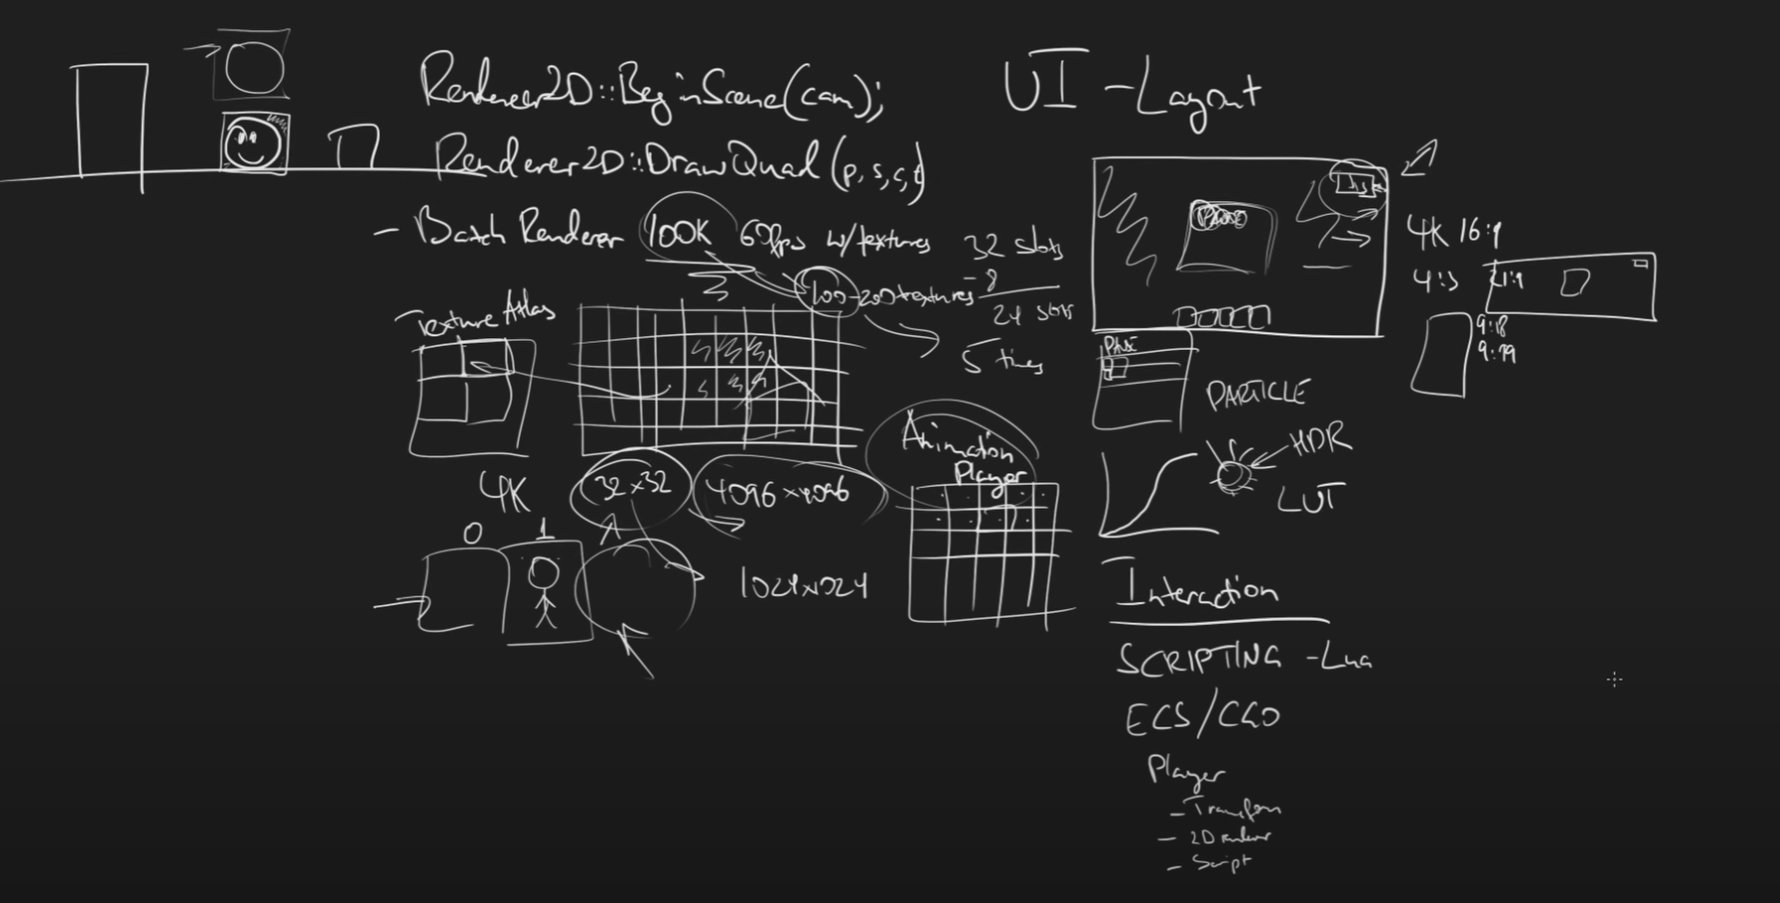 Renderer2D::BeginScene(cam);
Renderer2D::DrawQuad(p, s, c, t)
- Batch Renderer 100K 60fps w/textures
32 slots
- 8
24 slots
100-200 textures
5 times
- Texture Atlas
4K
32x32
4096x4096
0 1
1024x1024
Animation
Player
UI - Layout
4K 16:9
4:3
21:9
9:18
9:19
PARTICLE
HDR
LUT
Interaction
SCRIPTING - Lua
ECS/CGO
Player
- Transform
- 2D renderer
- Script